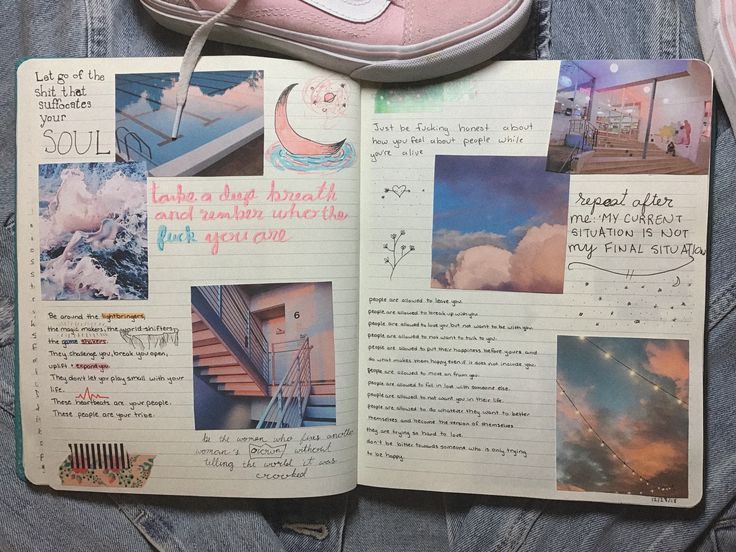 Let go of the
shit that
suffocates
your
SOUL
take a deep breath
and rember who the
fuck you are
Be around the lightbringers,
the magic makers, the world-shifters
the game shakers.
They challenge you, break you open,
uplift + expand you.
They don't let you play small with your
life.
These heartbeats are your people.
These people are your tribe.
6
be the woman who fixes another
woman's crown without
telling the world it was
crooked
Just be fucking honest about
how you feel about people while
you're alive
repeat after
me: MY CURRENT
SITUATION IS NOT
my FINAL SITUATION
people are allowed to leave you.
people are allowed to break up with you.
people are allowed to love you, but not want to be with you.
people are allowed to not want to talk to you.
people are allowed to put their happiness before yours and
do what makes them happy even if it does not include you.
people are allowed to move on from you.
people are allowed to fall in love with someone else.
people are allowed to not want you in their life.
people are allowed to do whatever they want to better
themselves and become the version of themselves
they are trying so hard to love.
don't be bitter towards someone who is only trying
to be happy.